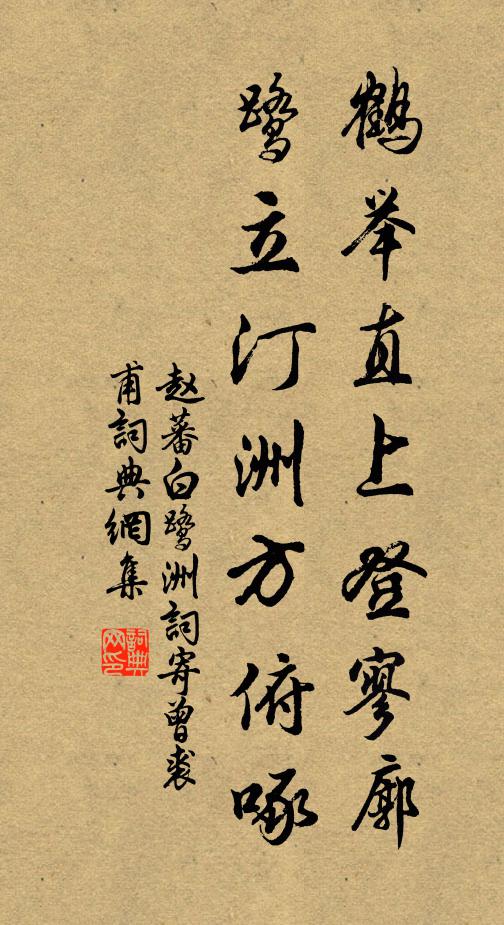 鹤举直上登寥廓
鹭立汀洲方俯啄
赵蕃白鹭洲詞寄曾裘
甫詞典網集
詞典网印